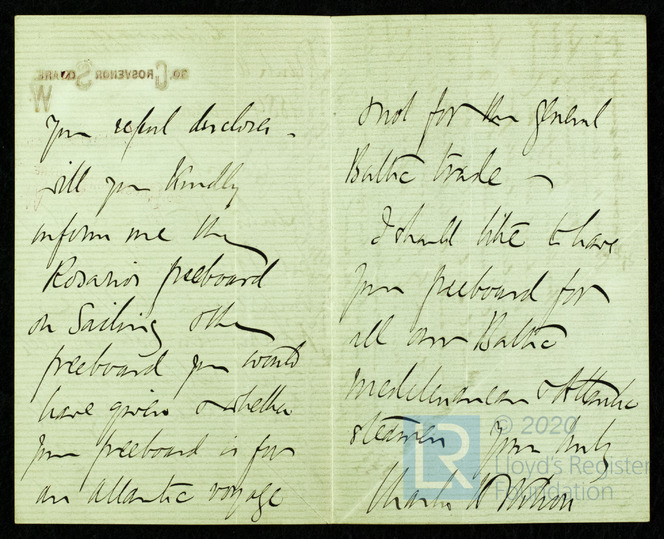 your report discloses -
will you kindly
inform me the
Rosario's freeboard
on Sailing & the
freeboard you would
have given & whether
your freeboard is for
an Atlantic voyage
& not for the general
Baltic trade -
I should like to have
your freeboard for
all our Baltic
Mediterranean & Atlantic
steamers Yours truly
Charles H Wilson
GROSVENOR SQUARE
W
© 2020
LR
Lloyd's Register
Foundation